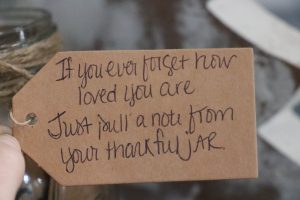 If you ever forget how
loved you are
Just pull a note from
your thankful JAR